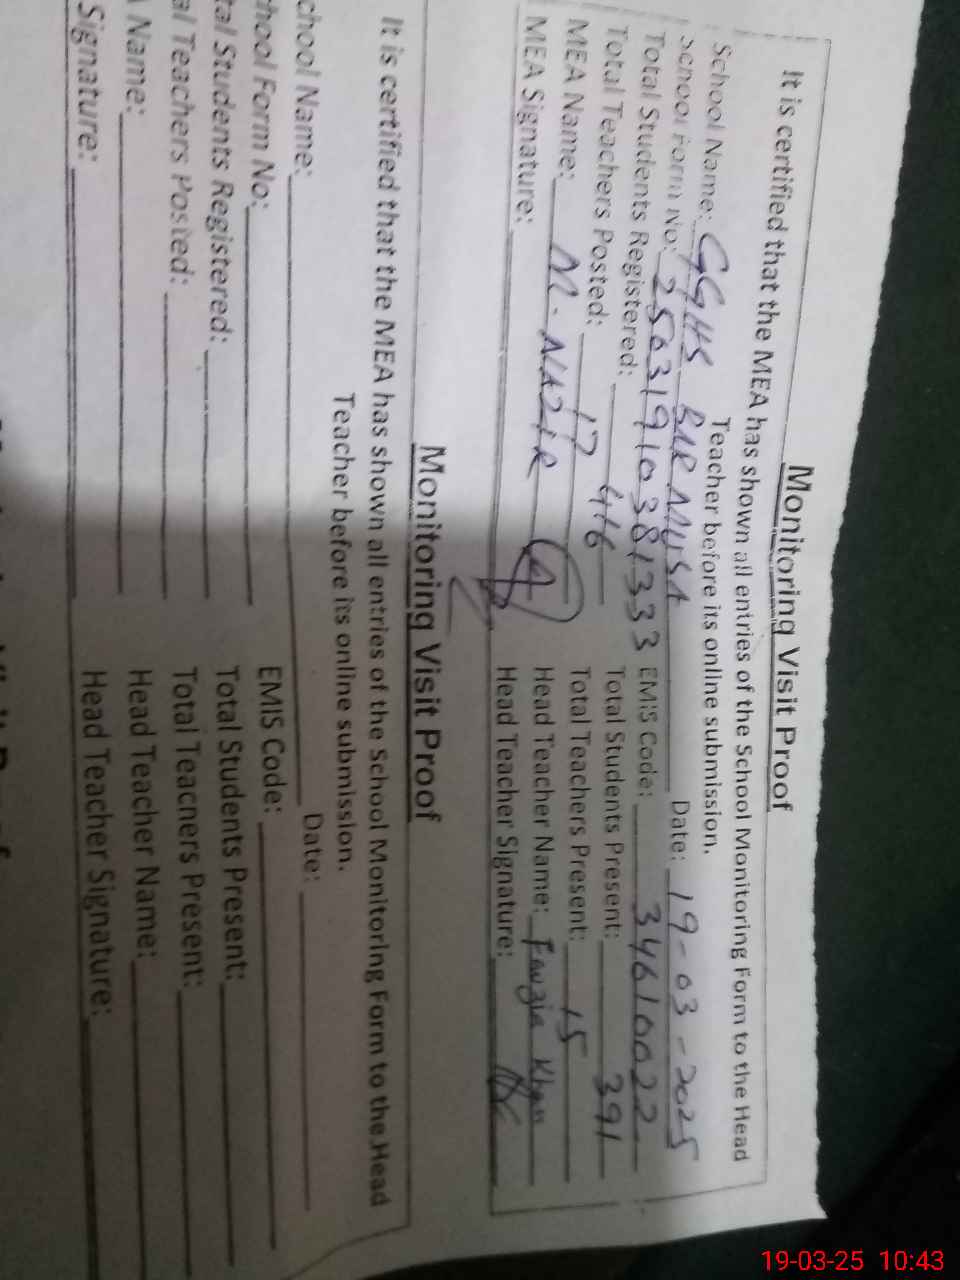 Monitoring Visit Proof
It is certified that the MEA has shown all entries of the School Monitoring Form to the Head
Teacher before its online submission.
School Name: GGHS BAR MUSA Date: 19-03-2025
School Form No: 25031910381333 EMIS Code: 34610022
Total Students Registered: 416 Total Students Present: 391
Total Teachers Posted: 17 Total Teachers Present: 15
MEA Name: M. NAZIR Head Teacher Name: Fauzia Khan
MEA Signature: Head Teacher Signature:
Monitoring Visit Proof
It is certified that the MEA has shown all entries of the School Monitoring Form to the Head
Teacher before its online submission.
chool Name: Date:
hool Form No: EMIS Code:
tal Students Registered: Total Students Present:
al Teachers Posted: Total Teachers Present:
Name: Head Teacher Name:
Signature: Head Teacher Signature:
19-03-25 10:43